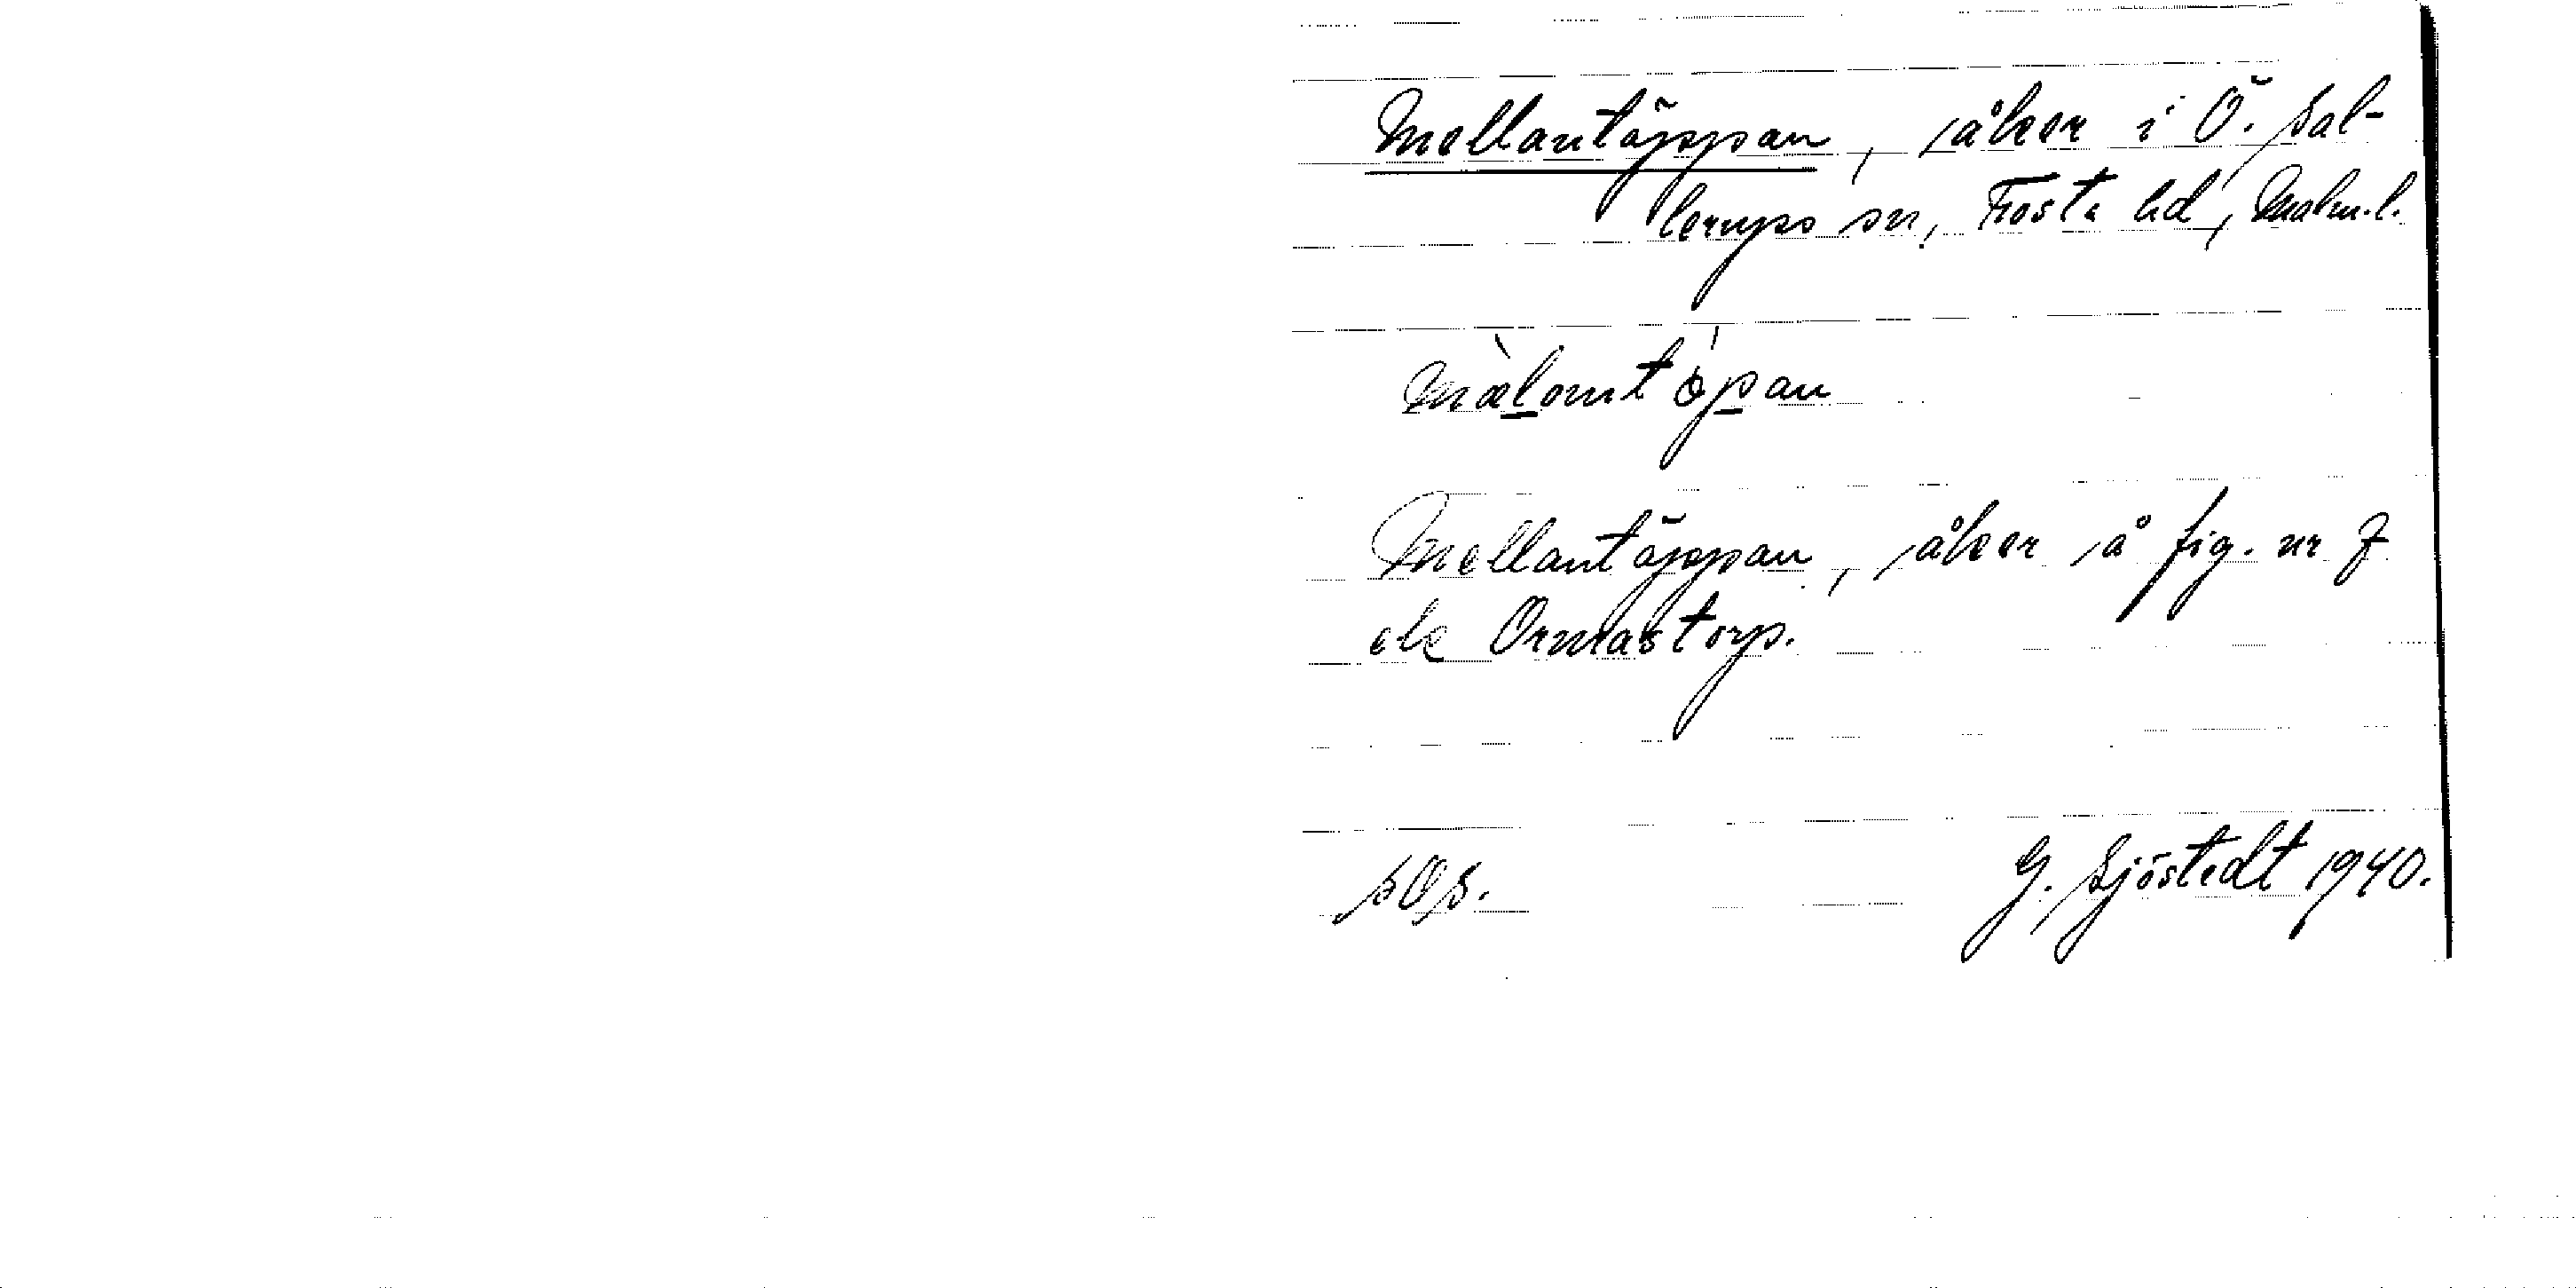 Mellantäppan, åker i Ö. Sal-
lerups sn, Frosta hd, Malm.l.
mælomtöpan
Mellantäppan, åker å fig. nr 7
ek Ormastorp.
SOS. G. Sjöstedt 1940.